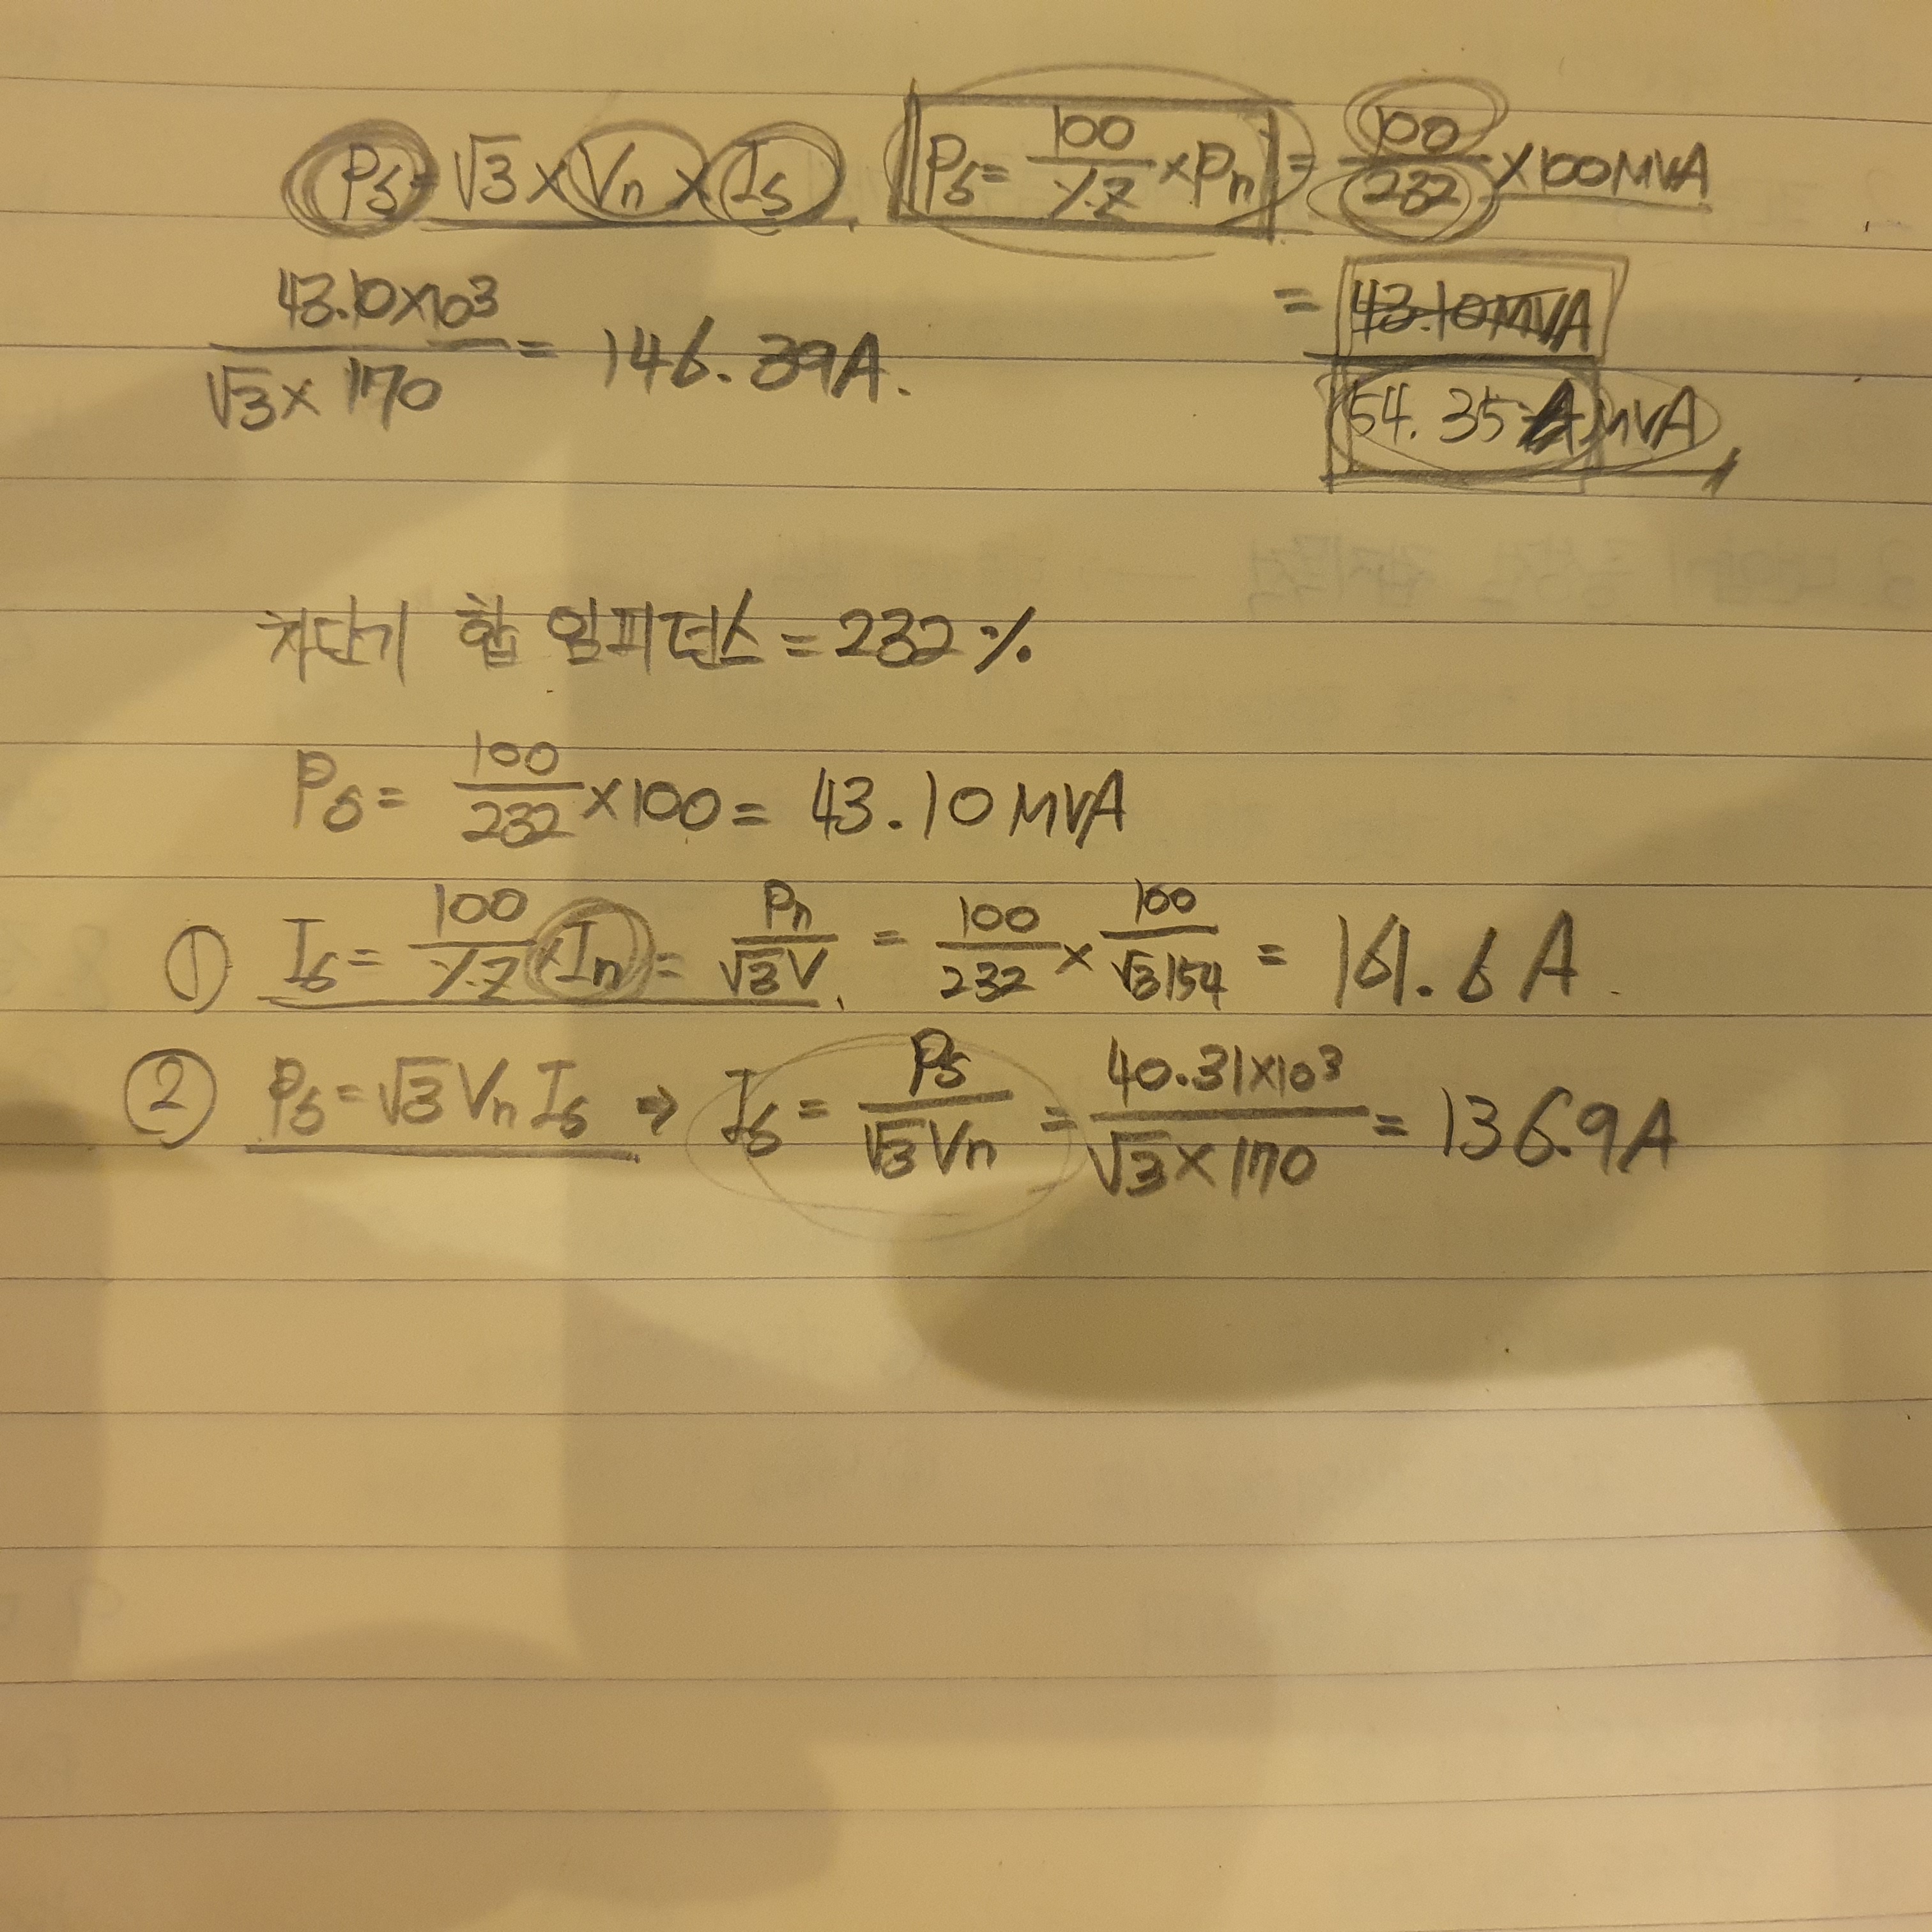 Ps = √3 × Vn × Is   Ps = 100/%Z × Pn = 100/232 × 100MVA
43.10×10³/√3 × 170 = 146.39A.   = 43.10MVA
54.35 MVA
차단기 합 임피던스 = 232%
Ps = 100/232 × 100 = 43.10MVA
① Is = 100/%Z × In = Pn/√3V = 100/232 × 100/√3 154 = 161.6A.
② Ps = √3 Vn Is ⇒ Is = Ps/√3 Vn = 40.31×10³/√3 × 170 = 136.9A